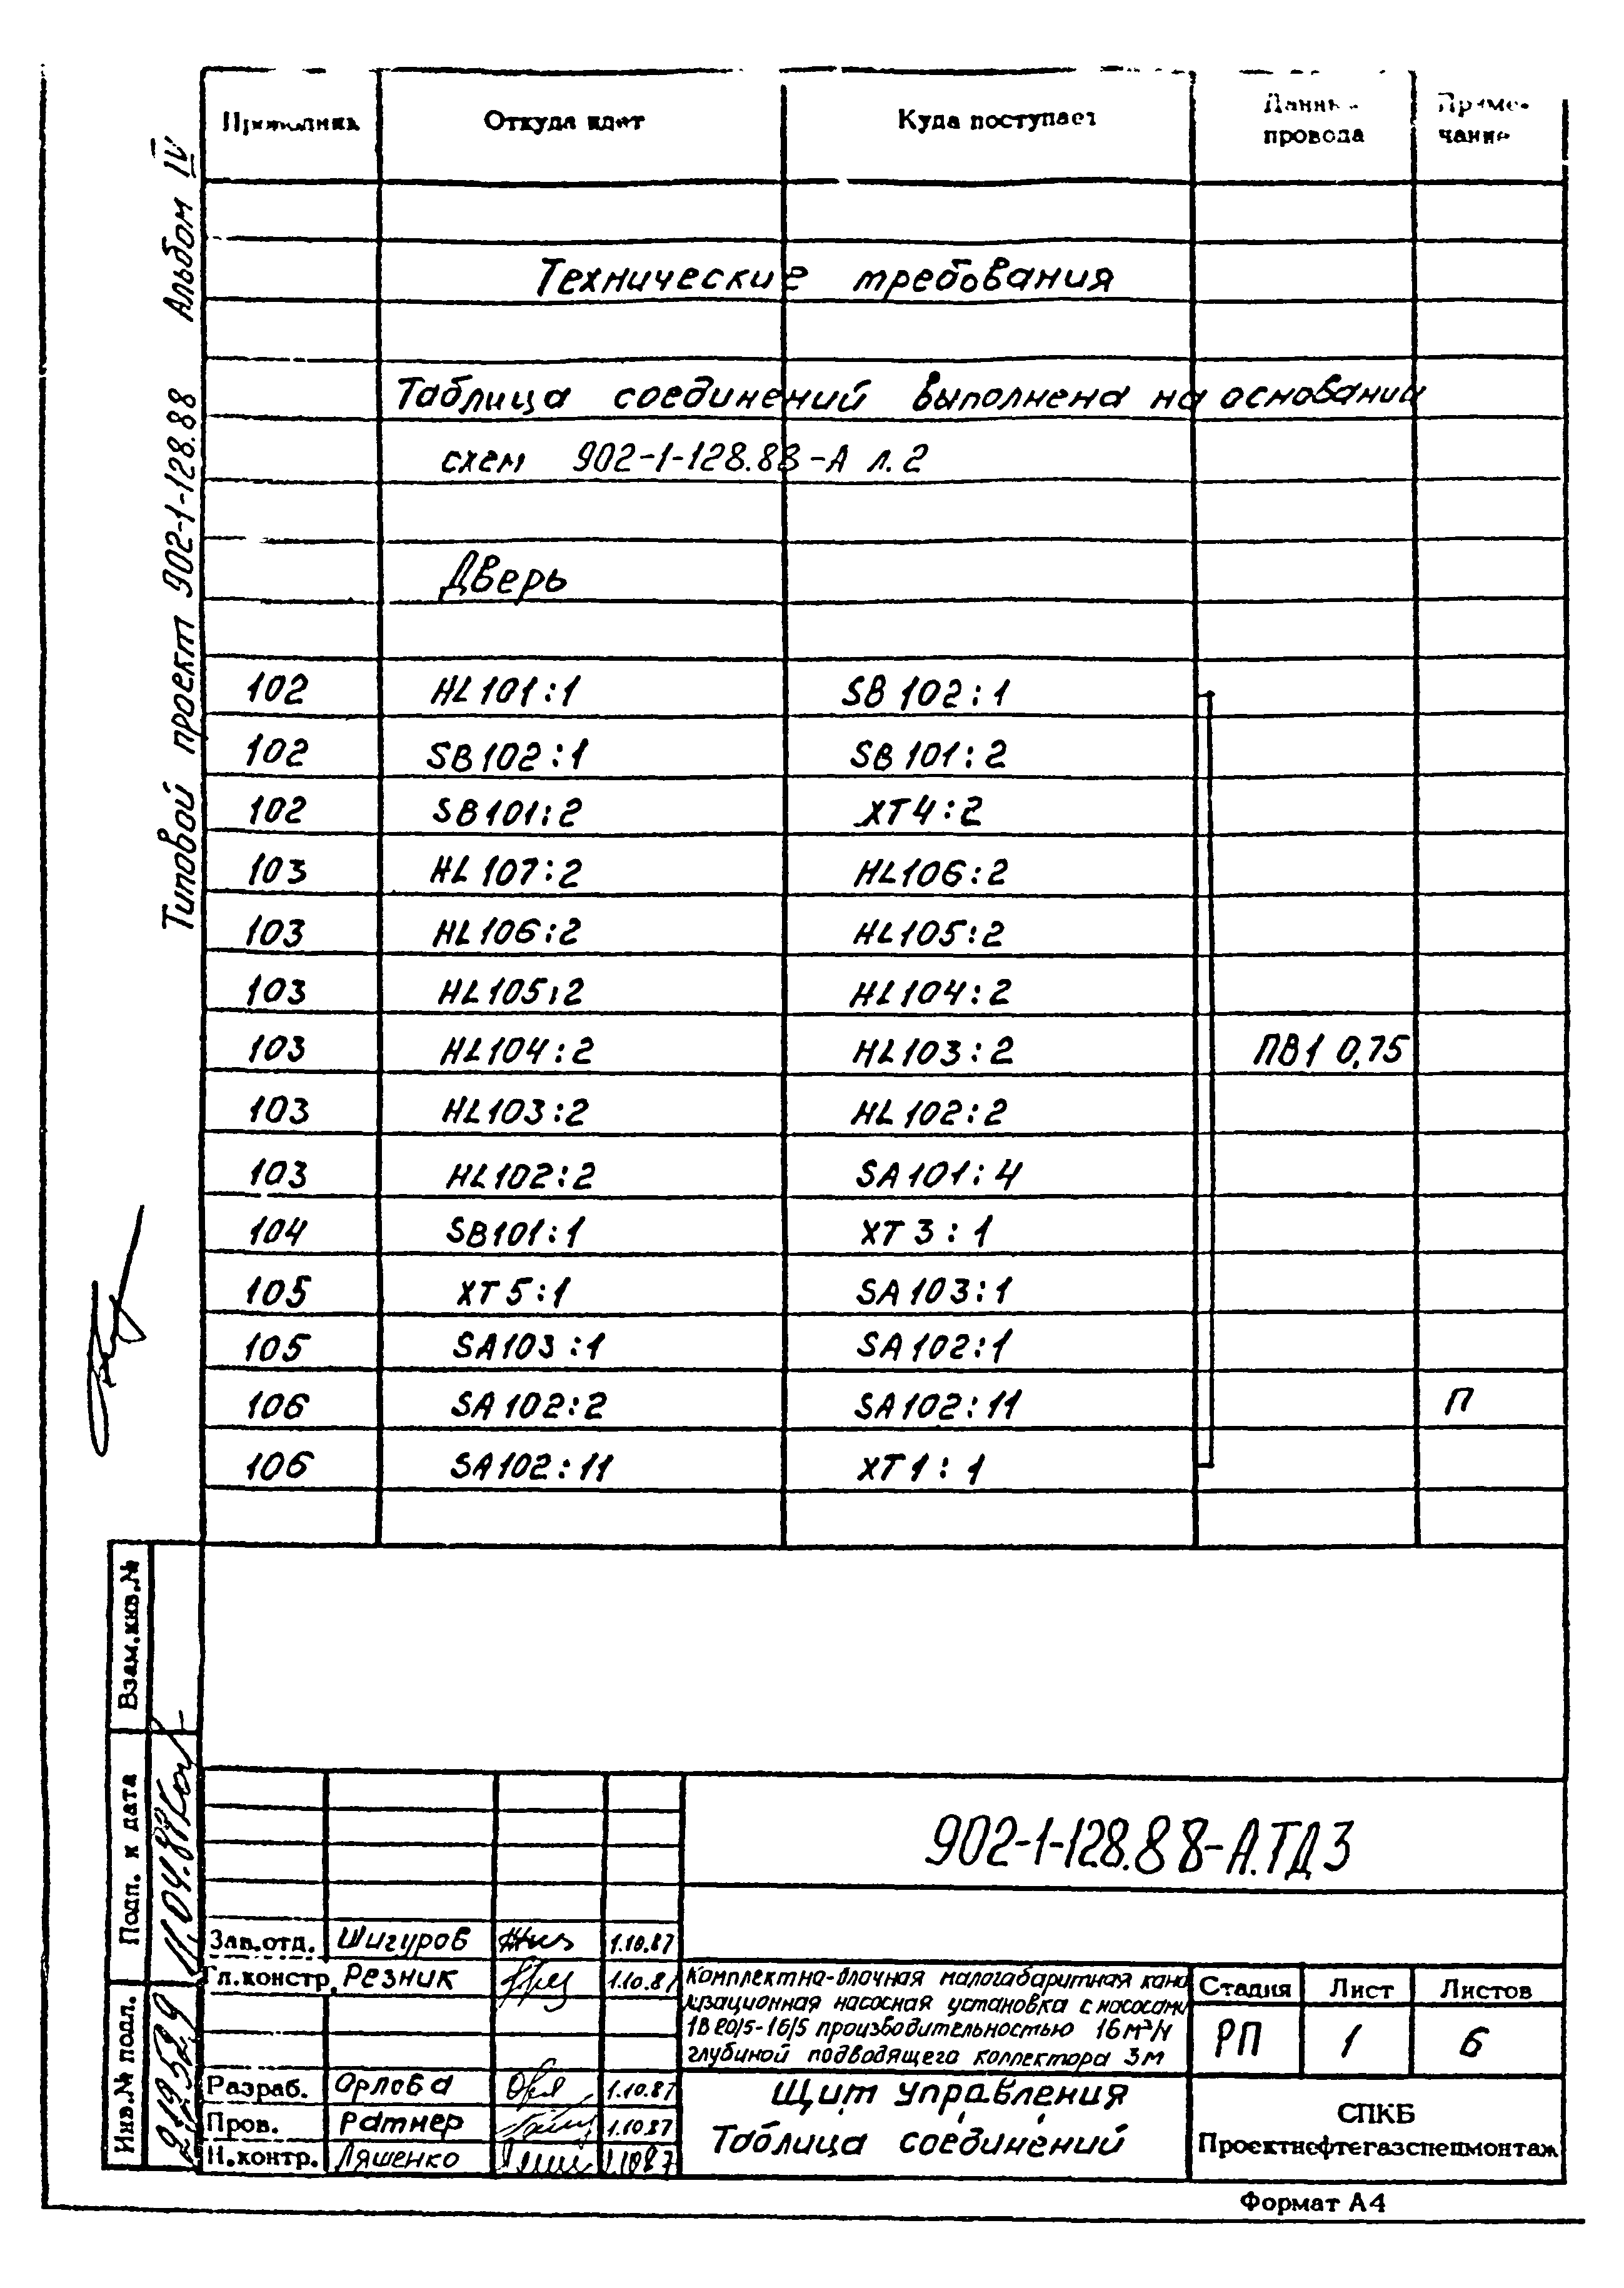 Альбом IV
Типовой проект 902-1-128.88
Проводник Откуда идет Куда поступает Данные провода Примечание
Технические требования
Таблица соединений выполнена на основании
схем 902-1-128.88-А л.2
Дверь
102 HL101:1 SB102:1
102 SB102:1 SB101:2
102 SB101:2 XT4:2
103 HL107:2 HL106:2
103 HL106:2 HL105:2
103 HL105:2 HL104:2
103 HL104:2 HL103:2 ПВ1 0,75
103 HL103:2 HL102:2
103 HL102:2 SA101:4
104 SB101:1 XT3:1
105 XT5:1 SA103:1
105 SA103:1 SA102:1
106 SA102:2 SA102:11 П
106 SA102:11 XT1:1
Взам.инв.№
Подп. и дата
Инв.№ подл.
902-1-128.88-А.ТД3
Зав.отд. Шигуров 1.10.87
Гл.констр. Резник 1.10.87
Комплектно-блочная малогабаритная кана
лизационная насосная установка с насосами
1В20/5-16/5 производительностью 16м³/ч
глубиной подводящего коллектора 3м
Стадия Лист Листов
РП 1 6
Разраб. Орлова 1.10.87
Пров. Ратнер 1.10.87
Н.контр. Ляшенко 1.10.87
Щит управления
Таблица соединений
СПКБ
Проектнефтегазспецмонтаж
Формат А4